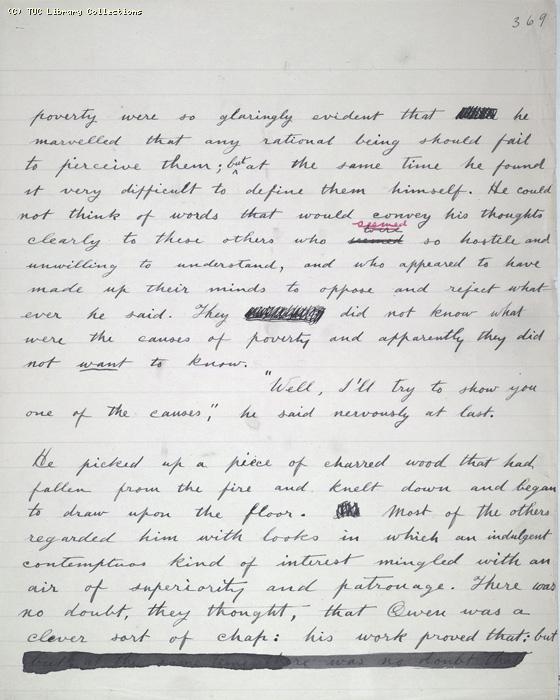 (C) TUC Library Collections
369
poverty were so glaringly evident that he
marvelled that any rational being should fail
to perceive them; but at the same time he found
it very difficult to define them himself. He could
not think of words that would convey his thoughts
seemed
clearly to these others who seemed so hostile and
unwilling to understand, and who appeared to have
made up their minds to oppose and reject what
ever he said. They did not know what
were the causes of poverty and apparently they did
not want to know.
"Well, I'll try to show you
one of the causes", he said nervously at last.
He picked up a piece of charred wood that had
fallen from the fire and knelt down and began
to draw upon the floor. Most of the others
regarded him with looks in which an indulgent
contemptuos kind of interest mingled with an
air of superiority and patronage. There was
no doubt, they thought, that Owen was a
clever sort of chap: his work proved that: but
at the same time there was no doubt that